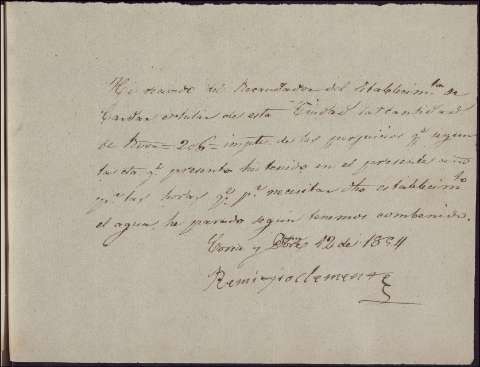 He recivido del Recaudador del Establecim.to de
Cardar e hilar de esta Ciudad la cantidad
de Rvon = 206 = impte. de los perjuicios q.e segun
q.e presento he tenido en el presente año
p.r las horas q.e p.r necesitar dho establecim.to
el agua, he parado segun tenemos combenido.
y Dbre 12 de 1834
Remigio Clemente